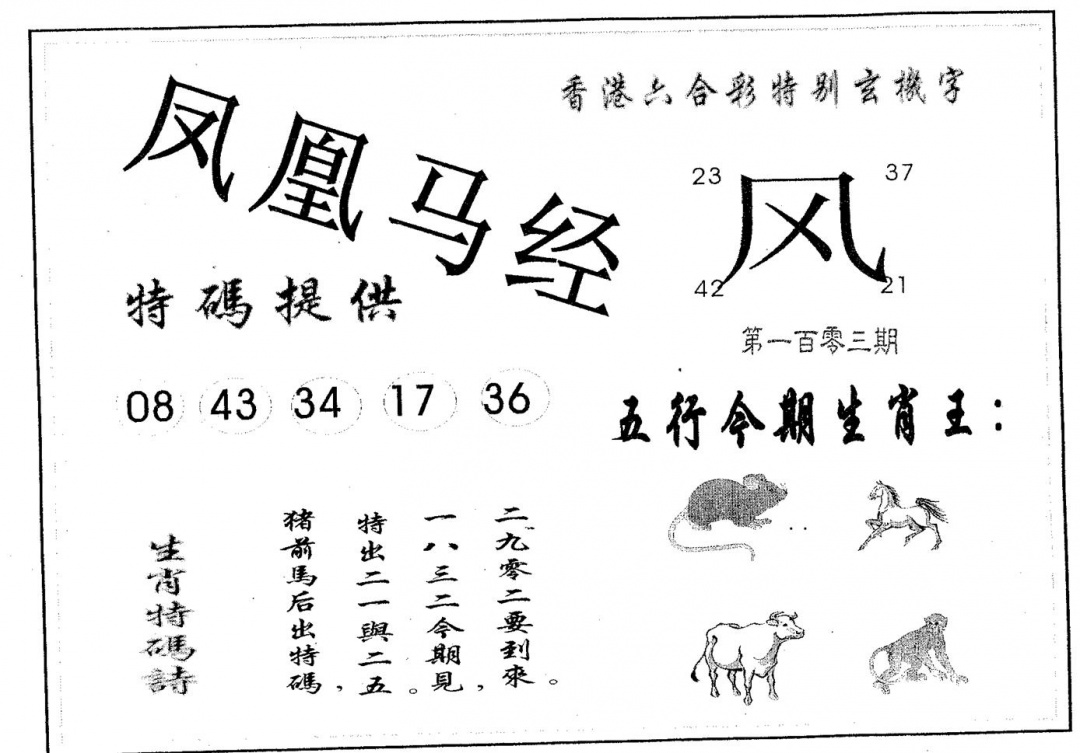 凤凰马经
香港六合彩特别玄機字
23 37
风
42 21
第一百零三期
特碼提供
08 43 34 17 36
五行今期生肖王：
生肖特碼詩
猪前馬后出特碼，
特出二一與二五。
一八三二今期見，
二九零二要到來。